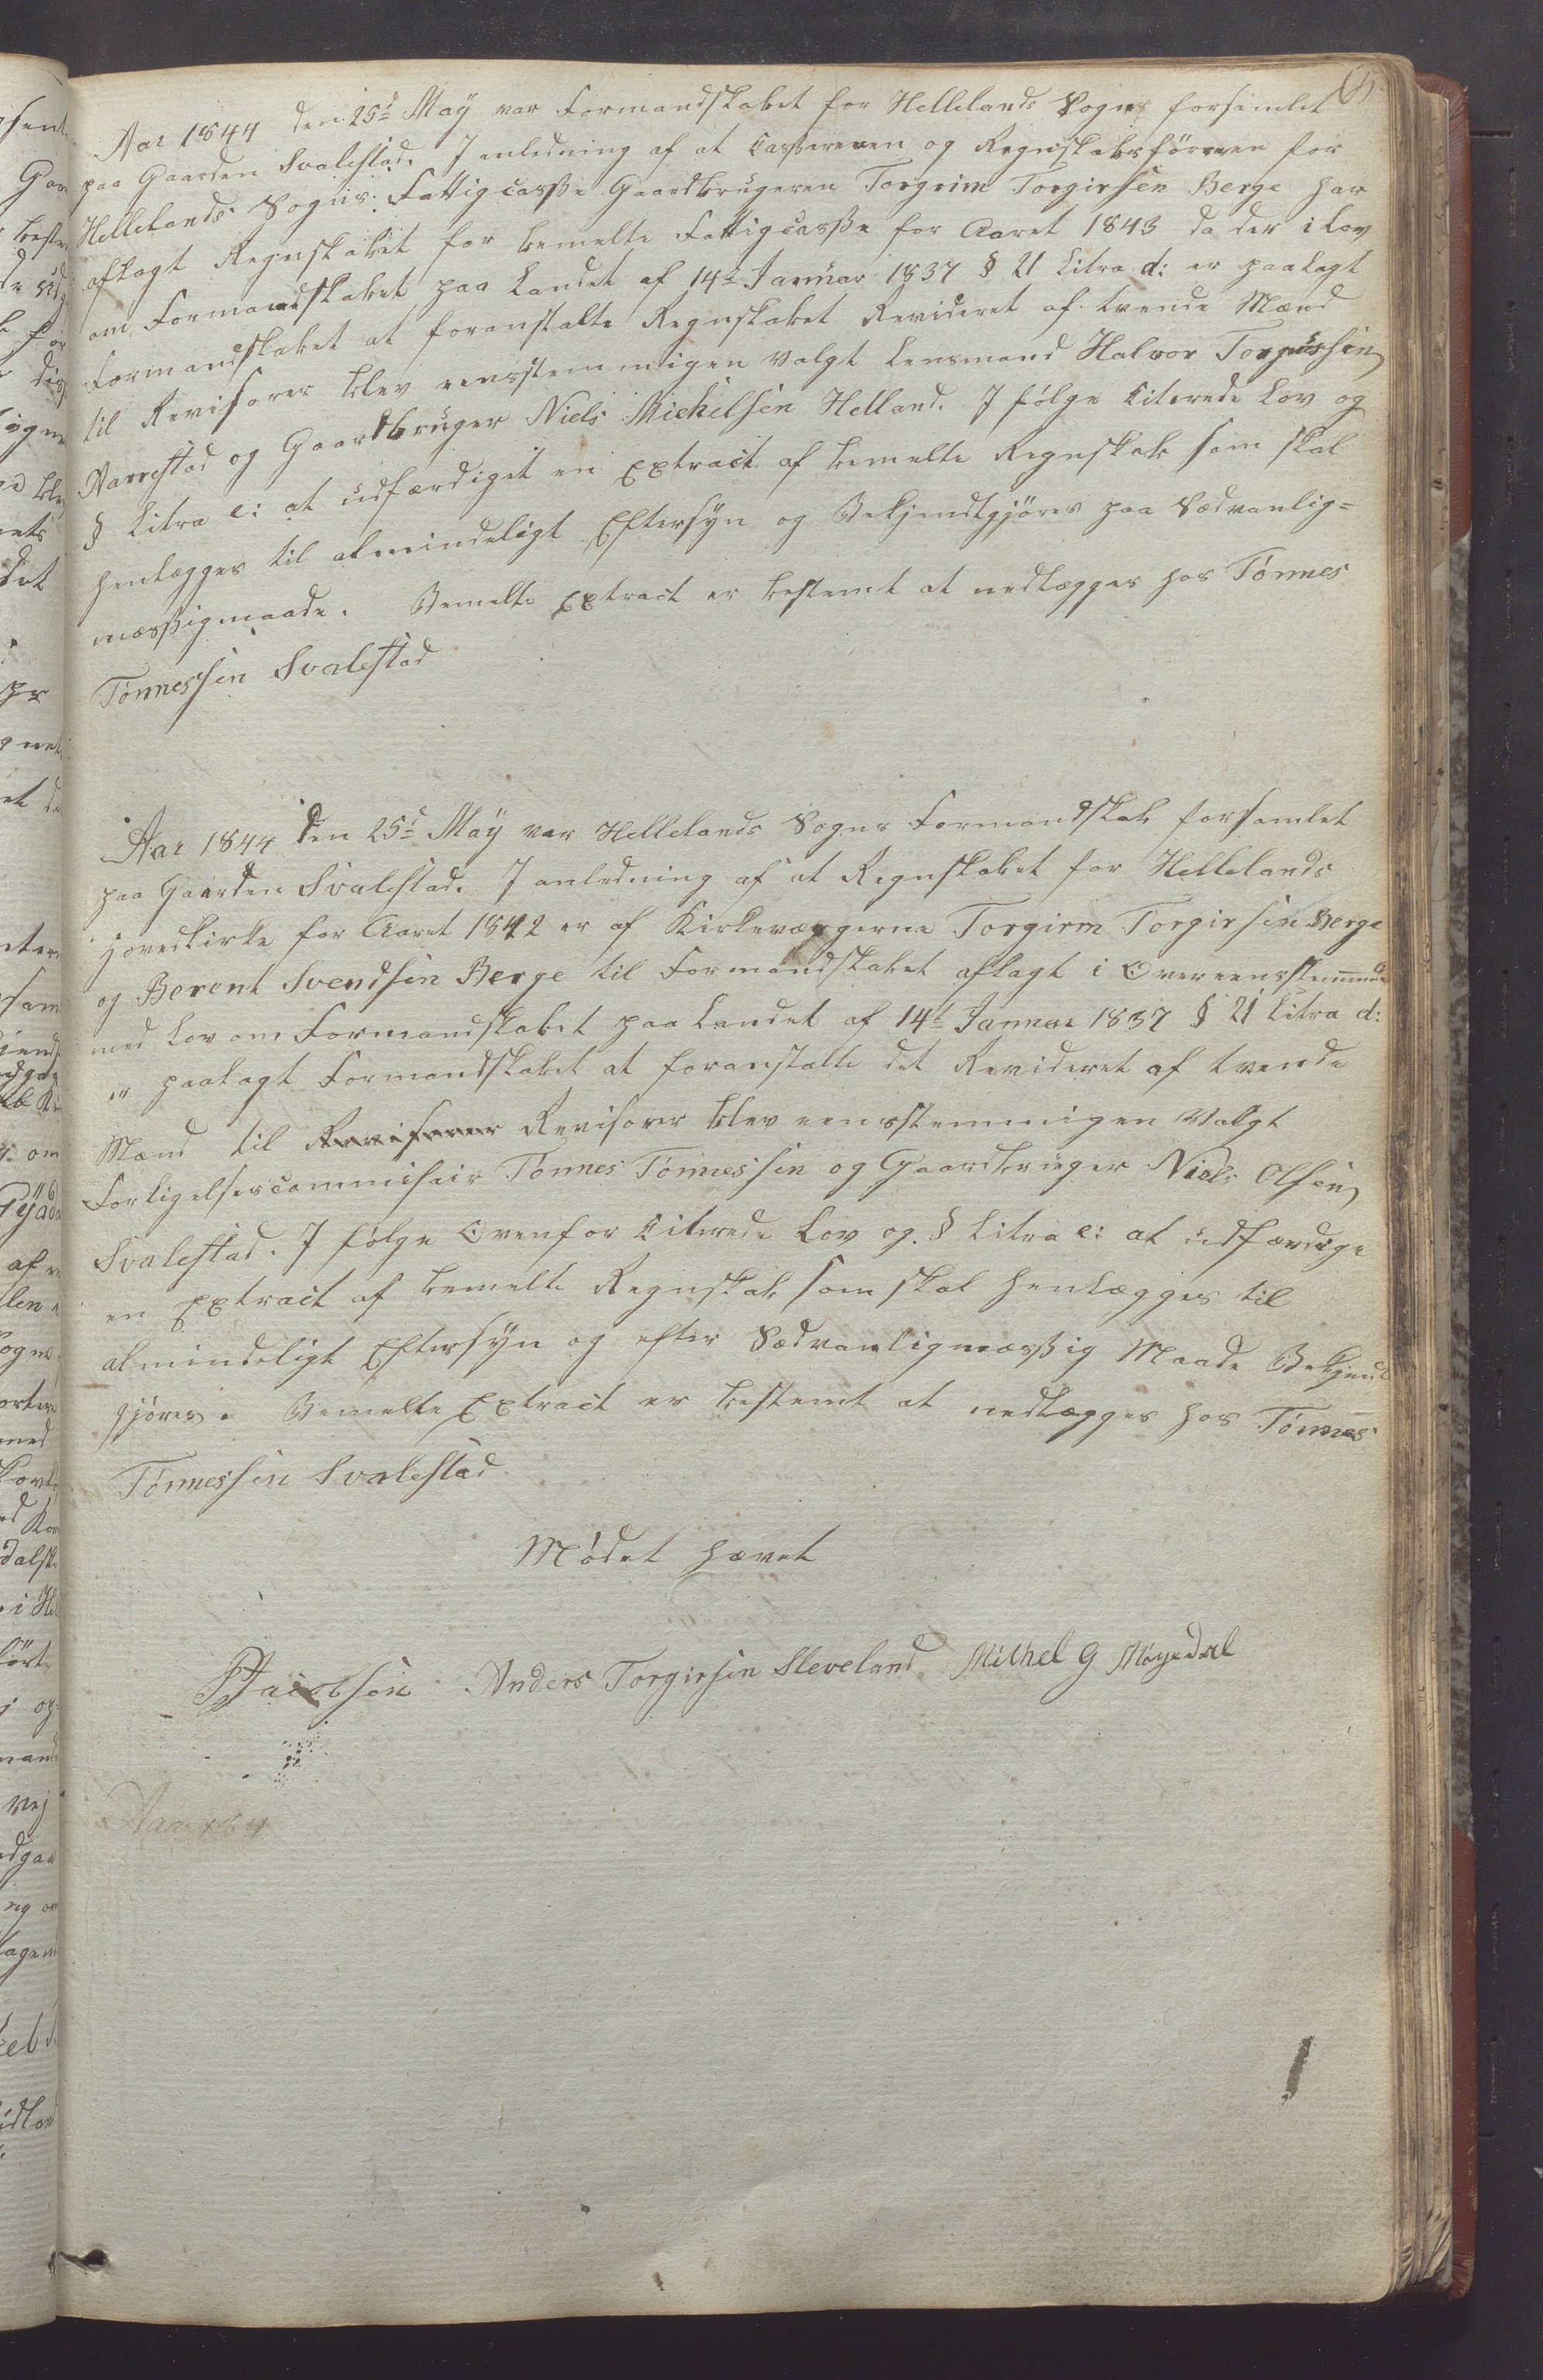 Aar 1844 den 25d Maÿ var Formandskabet for Hellelands Sogns forsamlet
paa Gaarden Svalestad. I anledning af at Casßereren og Regnskabsföreren for
Hellelands Sogns Fattigcasße Gaardbrugeren Torgrim Torgirsen Berge har
aflagt Regnskabet for bemelte Fattigcasße for Aaret 1843 da der i Lov
om Formandskabet paa Landet af 14de Januar 1837 § 21 Litra d: er paalagt
Formandskabet at foranstalte Regnskabet Revideret af tvende Mænd
til Revisorer blev eensstemmigen Valgt Lensmand Halvor Torgussen
Aarrestad og Gaardbruger Niels Mickelsen Helland. I følge Citerede Lov og
§ Litra e: at udfærdiget en Extract af bemelte Regnskab som skal
henlægges til almindeligt Eftersÿn og Bekjendtgjöres paa Sædvanlig=
mæsßigmaade. Bemelte Extract er bestemt at nedlægges hos Tönnes
Tönnessen Svalestad
Aar 1844 den 25d Maÿ var Hellelands Sogns Formandskab forsamlet
paa Gaarden Svalestad. I anledning af at Regnskabet for Hellelands
hovedkirke for Aaret 1842 er af Kirkeværgerne Torgirm Torgirsen Berge
og Berent Svendsen Berge til Formandskabet aflagt i Overeensstemmende
med Lov om Formandskabet paa Landet af 14d Januar 1837 § 21 Litra d:
er paalagt Formandskabet at foranstalte det Revideret af tvende
Mænd til Revisorer Revisorer blev eensstemmigen Valgt
Forligelsescommisair Tönnes Tönnessen og Gaardbruger Niels Olsen
Svalestad. I følge Ovenfor Citerede Lov og § Litra e: at udfærdige
en Extract af bemelte Regnskab som skal henlægges til
almindeligt Eftersÿn og efter Sædvanligmæsßig Maade Bekjendt
gjöres. Bemelte Extract er bestemt at nedlægges hos Tönnes
Tönnessen Svalestad
Mödet hævet
Jacobsen Anders Torgirsen Sleveland Mithel G Møgedal
Aar 184